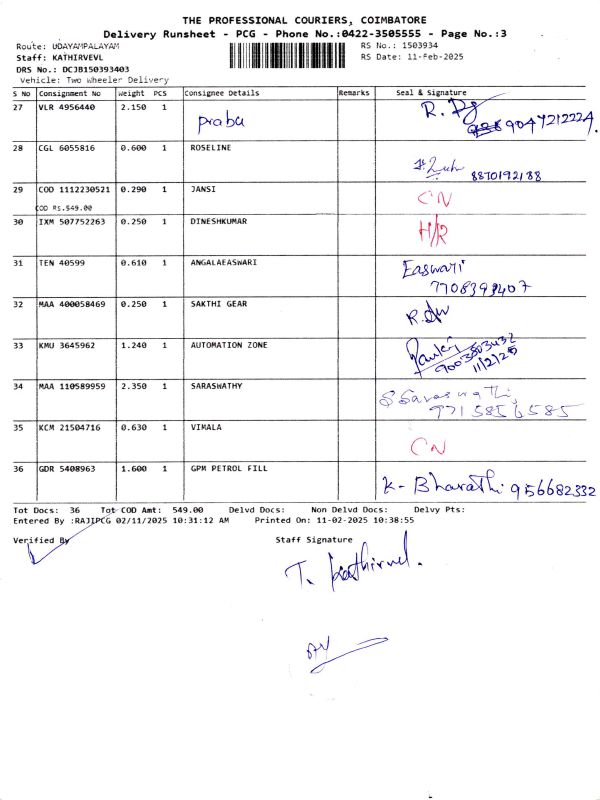 THE PROFESSIONAL COURIERS, COIMBATORE
Delivery Runsheet - PCG - Phone No.:0422-3505555 - Page No.:3
Route: UDAYAMPALAYAM RS No.: 1503934
Staff: KATHIRVEVL RS Date: 11-Feb-2025
DRS No.: DCJB150393403
Vehicle: Two Wheeler Delivery
S No Consignment No Weight PCS Consignee Details Remarks Seal & Signature
27 VLR 4956440 2.150 1 prabu
9047212224.
28 CGL 6055816 0.600 1 ROSELINE
8870192188
29 COD 1112230521 0.290 1 JANSI CN
COD RS.549.00
30 IXM 507752263 0.250 1 DINESHKUMAR H/R
31 TEN 40599 0.610 1 ANGALAEASWARI Easwari
7708393407
32 MAA 400058469 0.250 1 SAKTHI GEAR
33 KMU 3645962 1.240 1 AUTOMATION ZONE
9003803432
11/2/25
34 MAA 110589959 2.350 1 SARASWATHY S Saraswathi,
9715856585
35 KCM 21504716 0.630 1 VIMALA CN
36 GDR 5408963 1.600 1 GPM PETROL FILL K- Bharathi 956682332
Tot Docs: 36 Tot COD Amt: 549.00 Delvd Docs: Non Delvd Docs: Delvy Pts:
Entered By :RAJIPCG 02/11/2025 10:31:12 AM Printed On: 11-02-2025 10:38:55
Verified By Staff Signature
T. Kathirvel.